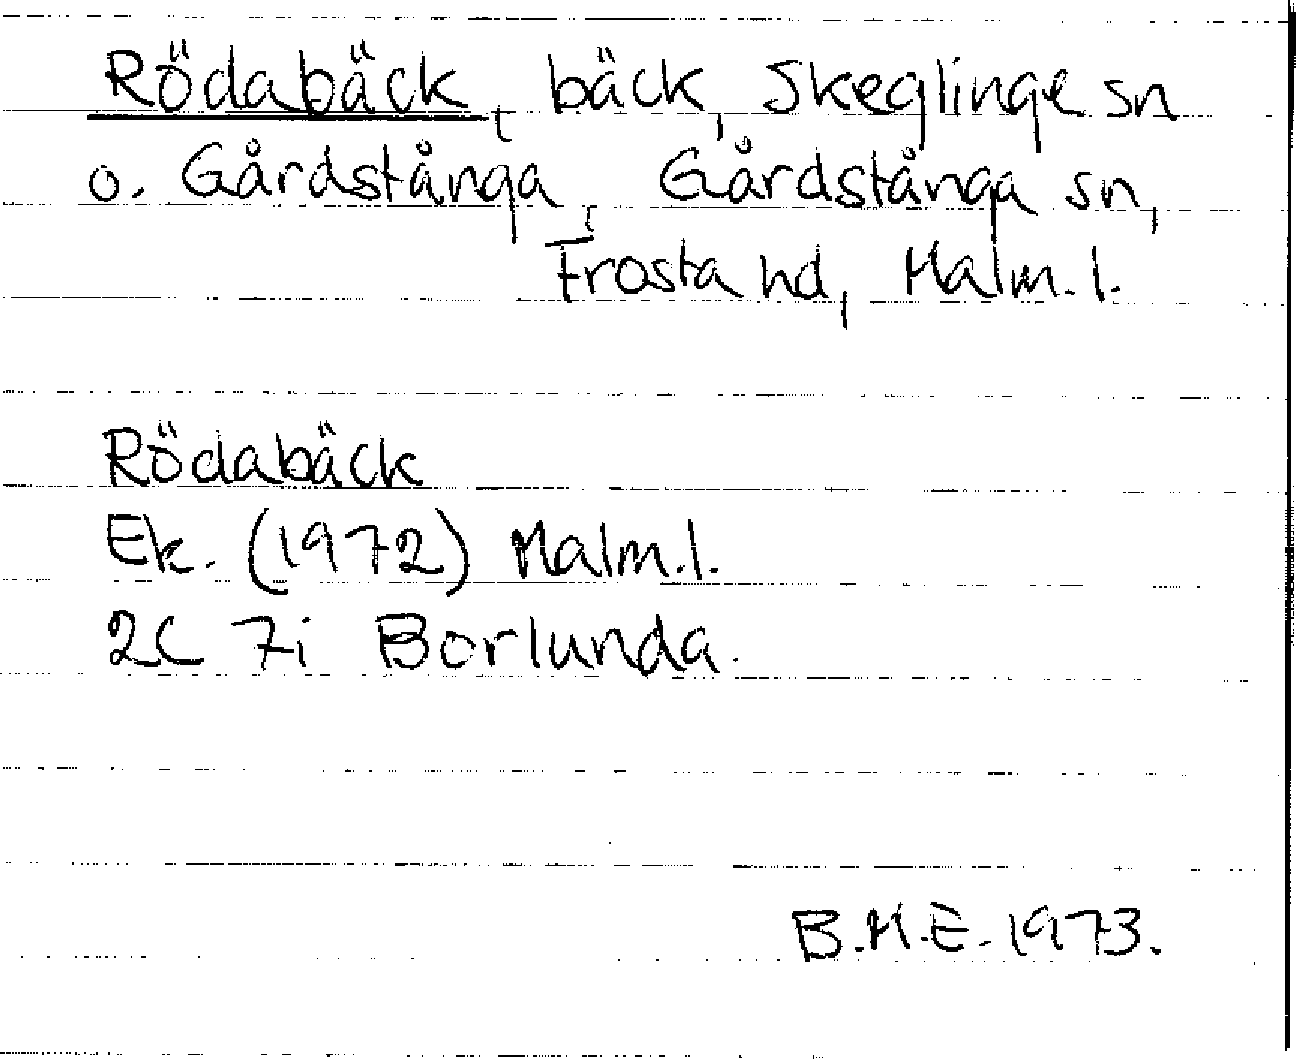 Rödabäck, bäck, Skeglinge sn
o. Gårdstånga, Gårdstånga sn,
Frosta hd, Malm.l.
Rödabäck
Ek. (1972) Malm.l.
2C 7i Borlunda.
B.M.E. 1973.